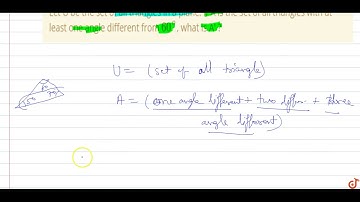 Let U be the set of all triangles in a plane. If A is the set of all triangles with at
least one angle different from 60°, what is A'?
U = (set of all triangle)
A = (one angle different + two differ + three
angle different)